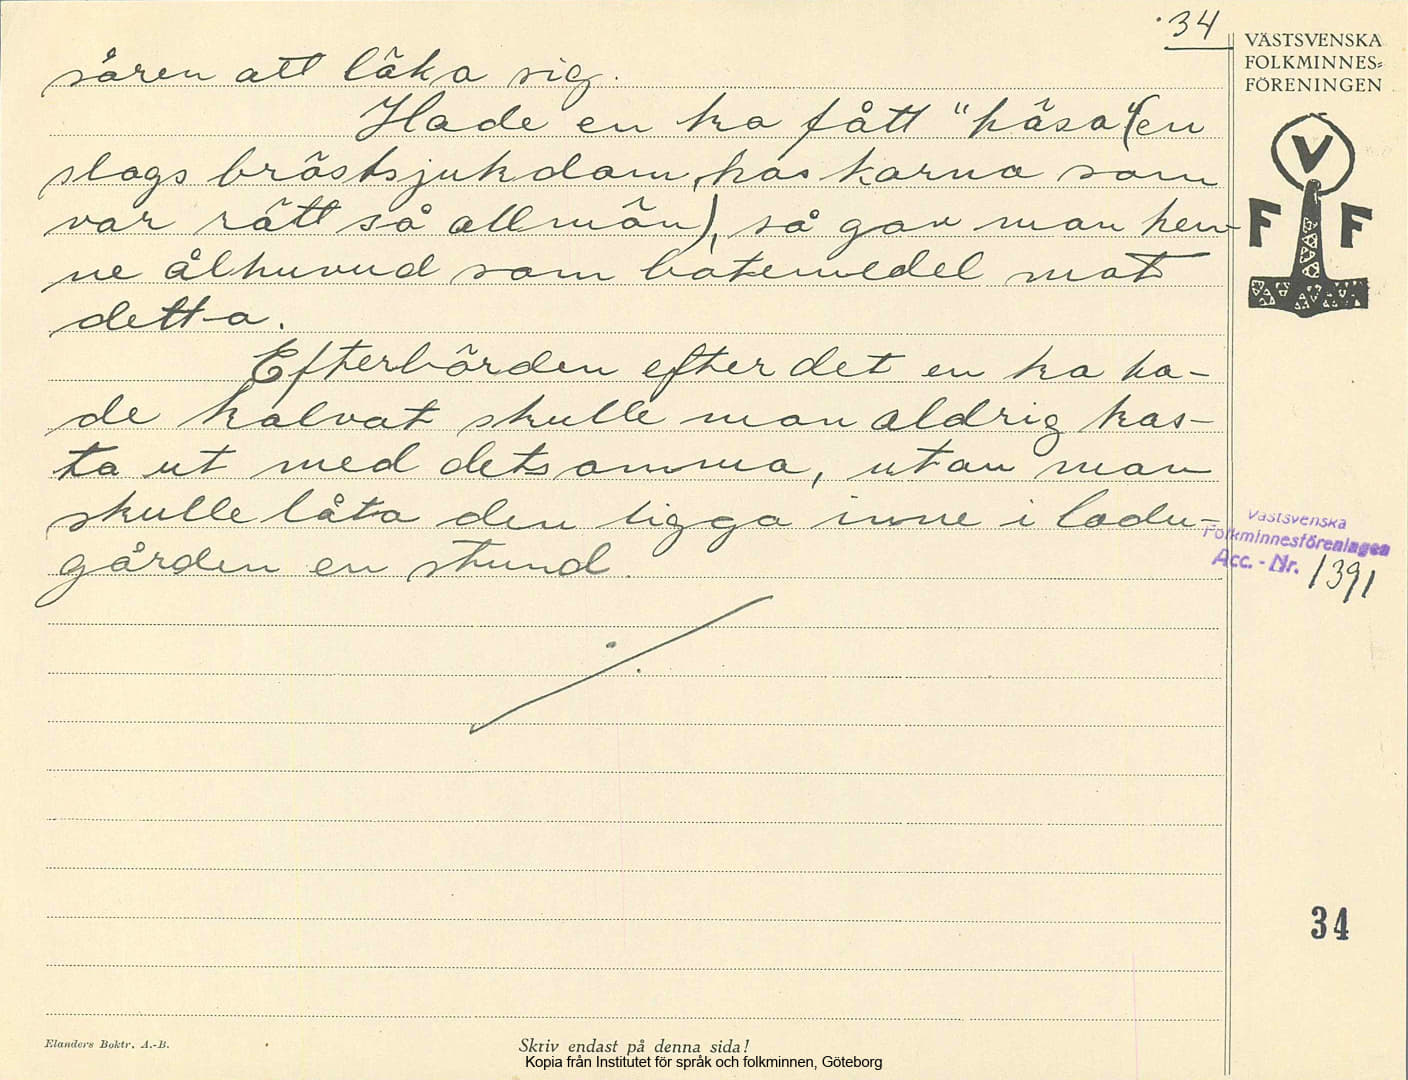 34
VÄSTSVENSKA
FOLKMINNES=
FÖRENINGEN
V
F F
såren att läka sig.
Hade en ko fått "häsa" (en
slags bröstsjukdom, hos korna som
var rätt så allmän), så gav man hen-
ne ålhuvud som botemedel mot
detta.
Efterbörden efter det en ko ha-
de kalvat skulle man aldrig kas-
ta ut med detsamma, utan man
skulle låta den ligga inne i ladu-
gården en stund.
Västsvenska
Folkminnesföreningen
Acc. - Nr. 1391
34
Elanders Boktr. A.-B.
Skriv endast på denna sida!
Kopia från Institutet för språk och folkminnen, Göteborg